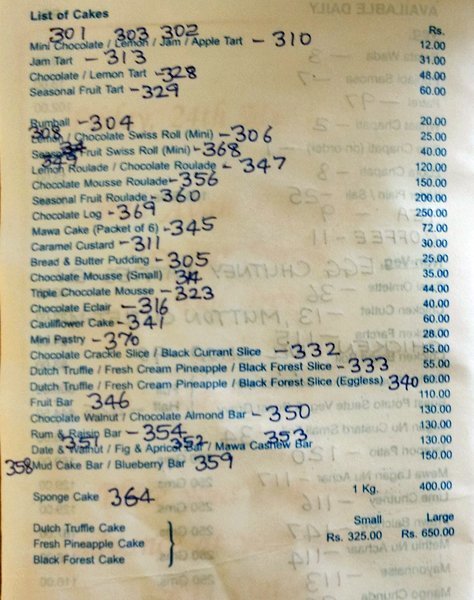 List of Cakes Rs.
301 303 302
Mini Chocolate / Lemon / Jam / Apple Tart - 310 12.00
Jam Tart - 313 31.00
Chocolate / Lemon Tart - 328 48.00
Seasonal Fruit Tart - 329 60.00
Rumball - 304 20.00
308 Lemon / Chocolate Swiss Roll (Mini) - 306 25.00
Seasonal Fruit Swiss Roll (Mini) - 368 40.00
343 Lemon Roulade / Chocolate Roulade - 347 120.00
Chocolate Mousse Roulade - 356 150.00
Seasonal Fruit Roulade - 360 200.00
Chocolate Log - 369 250.00
Mawa Cake (Packet of 6) - 345 72.00
Caramel Custard - 311 30.00
Bread & Butter Pudding - 305 25.00
Chocolate Mousse (Small) 35.00
Triple Chocolate Mousse - 323 44.00
Chocolate Eclair - 316 40.00
Cauliflower Cake - 341 60.00
Mini Pastry - 370 28.00
Chocolate Crackle Slice / Black Currant Slice - 332 55.00
Dutch Truffle / Fresh Cream Pineapple / Black Forest Slice - 333 55.00
Dutch Truffle / Fresh Cream Pineapple / Black Forest Slice (Eggless) 340 60.00
Fruit Bar 346 110.00
Chocolate Walnut / Chocolate Almond Bar - 350 130.00
Rum & Raisin Bar - 354 130.00
351 352 353
Date & Walnut / Fig & Apricot Bar / Mawa Cashew Bar 130.00
358 Mud Cake Bar / Blueberry Bar 359 150.00
Sponge Cake 364 1 Kg. 400.00
Small Large
Dutch Truffle Cake Rs. 325.00 Rs. 650.00
Fresh Pineapple Cake
Black Forest Cake